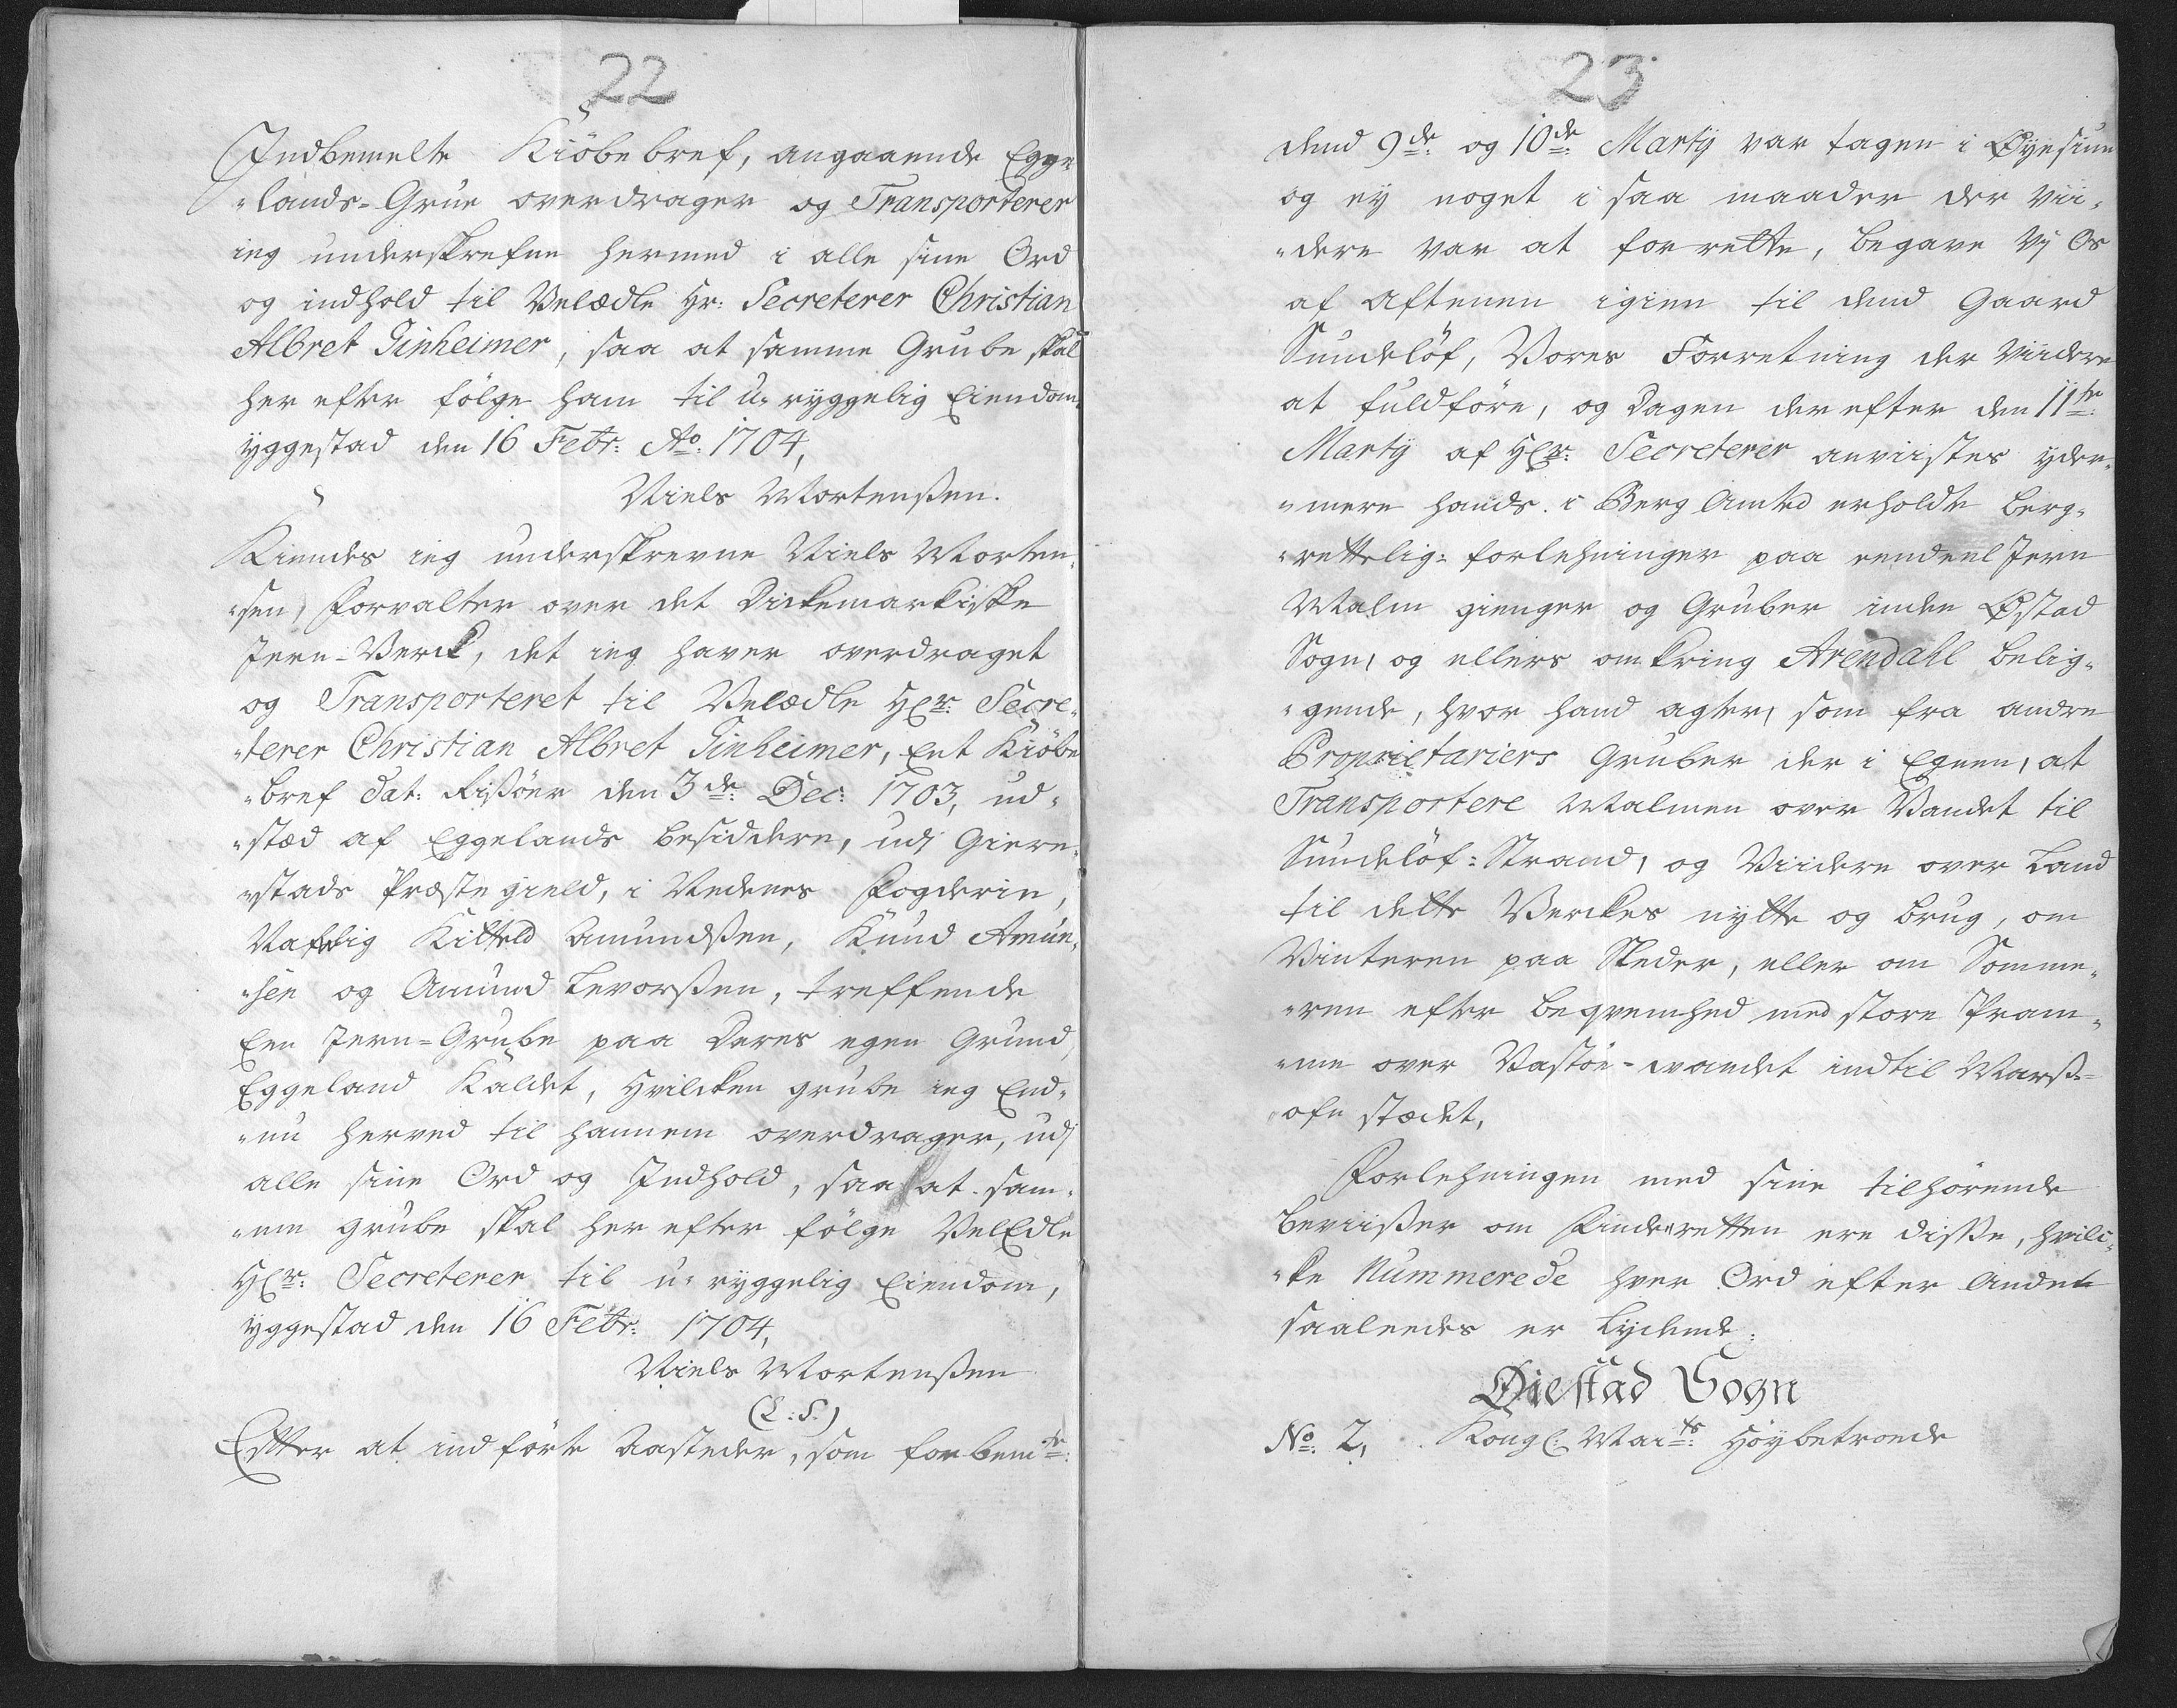 22
Indbemelte Kiöbebref, angaaende Egge„
„lands-Grue overdrager og Transporterer
ieg underskrefne hermed i alle sine Ord
og indhold til Velædle Hr: Secreterer Christian
Albret Ginheimer, saa at samme Grube skal
her efter fölge ham til u„ryggelig Eiendom,
yggestad den 16 Febr: Ao: 1704,
Niels Mortenßen.
Kiendes ieg underskrevne Niels Morten„
„sen, Forvalter over det Dickemarkiske
Jern-Verck, det ieg haver overdraget
og Transporteret til Velædle Hr: Secre„
„terer Christian Albret Ginheimer, Ent Kiöbe
„bref dat: Rißöer den 3de: Dec: 1703, ud„
„stæd af Eggelands besiddere, udj Giere„
„stads Præstegield, i Nedenes Fogderie,
Kitteld Amundßen, Knud Amun„
„sen og Amund Levorßen, treffende
Een Jern-Grube paa Deres egen Grund,
Eggeland Kaldet, Hvilcken grube ieg End„
„nu herved til hannem overdrager, udj
alle sine Ord og Indhold, saa at sam„
„me grube skal her efter fölge VelEdle
Hr: Secreterer til u„ryggelig Eiendom,
yggestad den 16 Febr: 1704,
Niels Mortenßen
(L:S.)
Efter at indförte Aasteder, som forbemte:
23
dend 9de: og 10de: Martÿ var tagen i Øyesiun
og ey noget i saa maader der vii„
„dere var at forrette, begave Vj Os
af Aftenen igien til dend Gaard
Sundelöf, Vores Forretning der Viidere
at fuldföre, og Dagen derefter den 11te:
Martÿ af Hr: Secreterer anviistes yder„
„mere hands i Berg Amted erholdte berg„
„rettelig: forlehninger paa eendeel Jern
Malm gienger og Gruber inden Østad
Sogn, og ellers omkring Arendahl belig„
„gende, hvor hand agter, som fra andre
Proprietariers Gruber der i Egnen, at
Transportere Malmen over Vandet til
Sundelöf: Strand, og Viidere over Land
til dette Verckes nytte og brug, om
Vinteren paa Sleder, eller om Somme„
„ren efter beqvemhed med store Pram„
„me over Vastöe-wandet indtil Marß-
„ofn stædet,
Forlehningen med sine tilhörende
beviißer om Finderetten ere disse, hvilc„
„ke Nummerede hver Ord efter Andet
saaleedes er Lydende:
Øiestad Sogn
No: 2, Kongl: Maits: Höybetroede